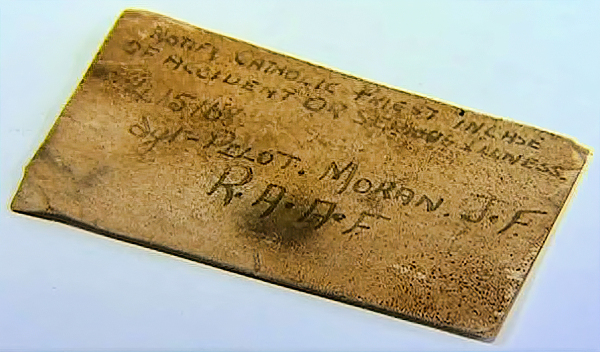 NOTIFY CATHOLIC PRIEST IN CASE
OF ACCIDENT OR SERIOUS ILLNESS.
Sgt = PILOT. MORAN. J.F.
R.A.A.F